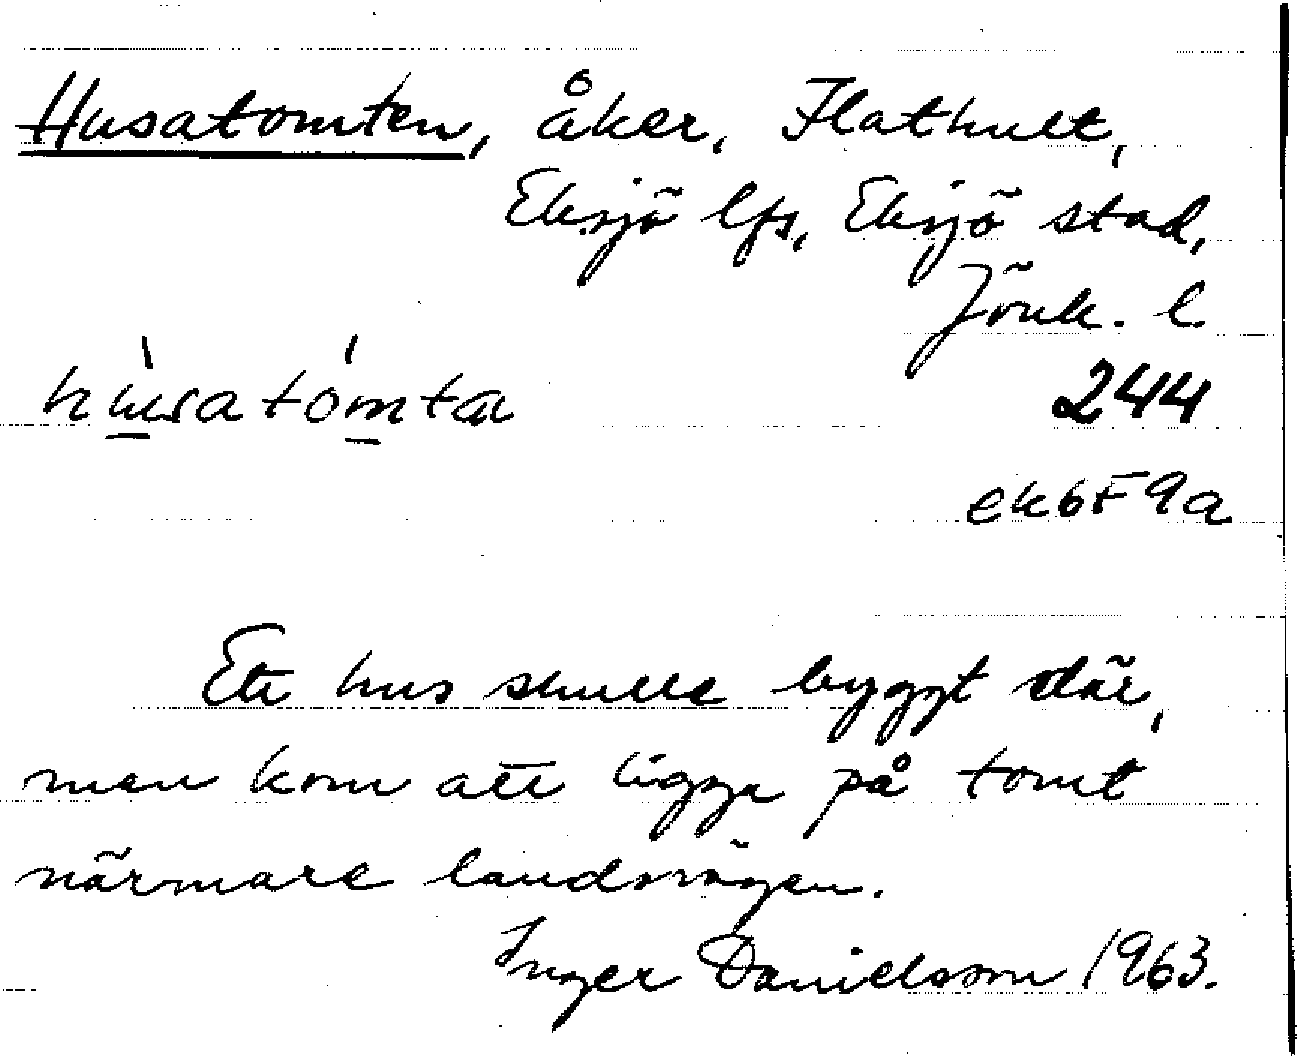 Husatomten, åker, Flathult,
Eksjö lfs, Eksjö stad,
Jönk. l.
hùsatómta
244
ek6F9a
Ett hus skulle byggt där,
men kom att ligga på tomt
närmare landsvägen.
Inger Danielsson 1963.